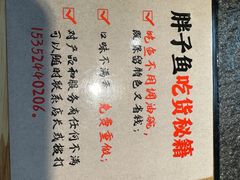 胖子鱼吃货秘籍
吃鱼不用调油碗，
既保留特色又省钱；
口味不满意，免费重做；
对产品和服务有任何不满
可以随时联系店长或拨打
15352440206。